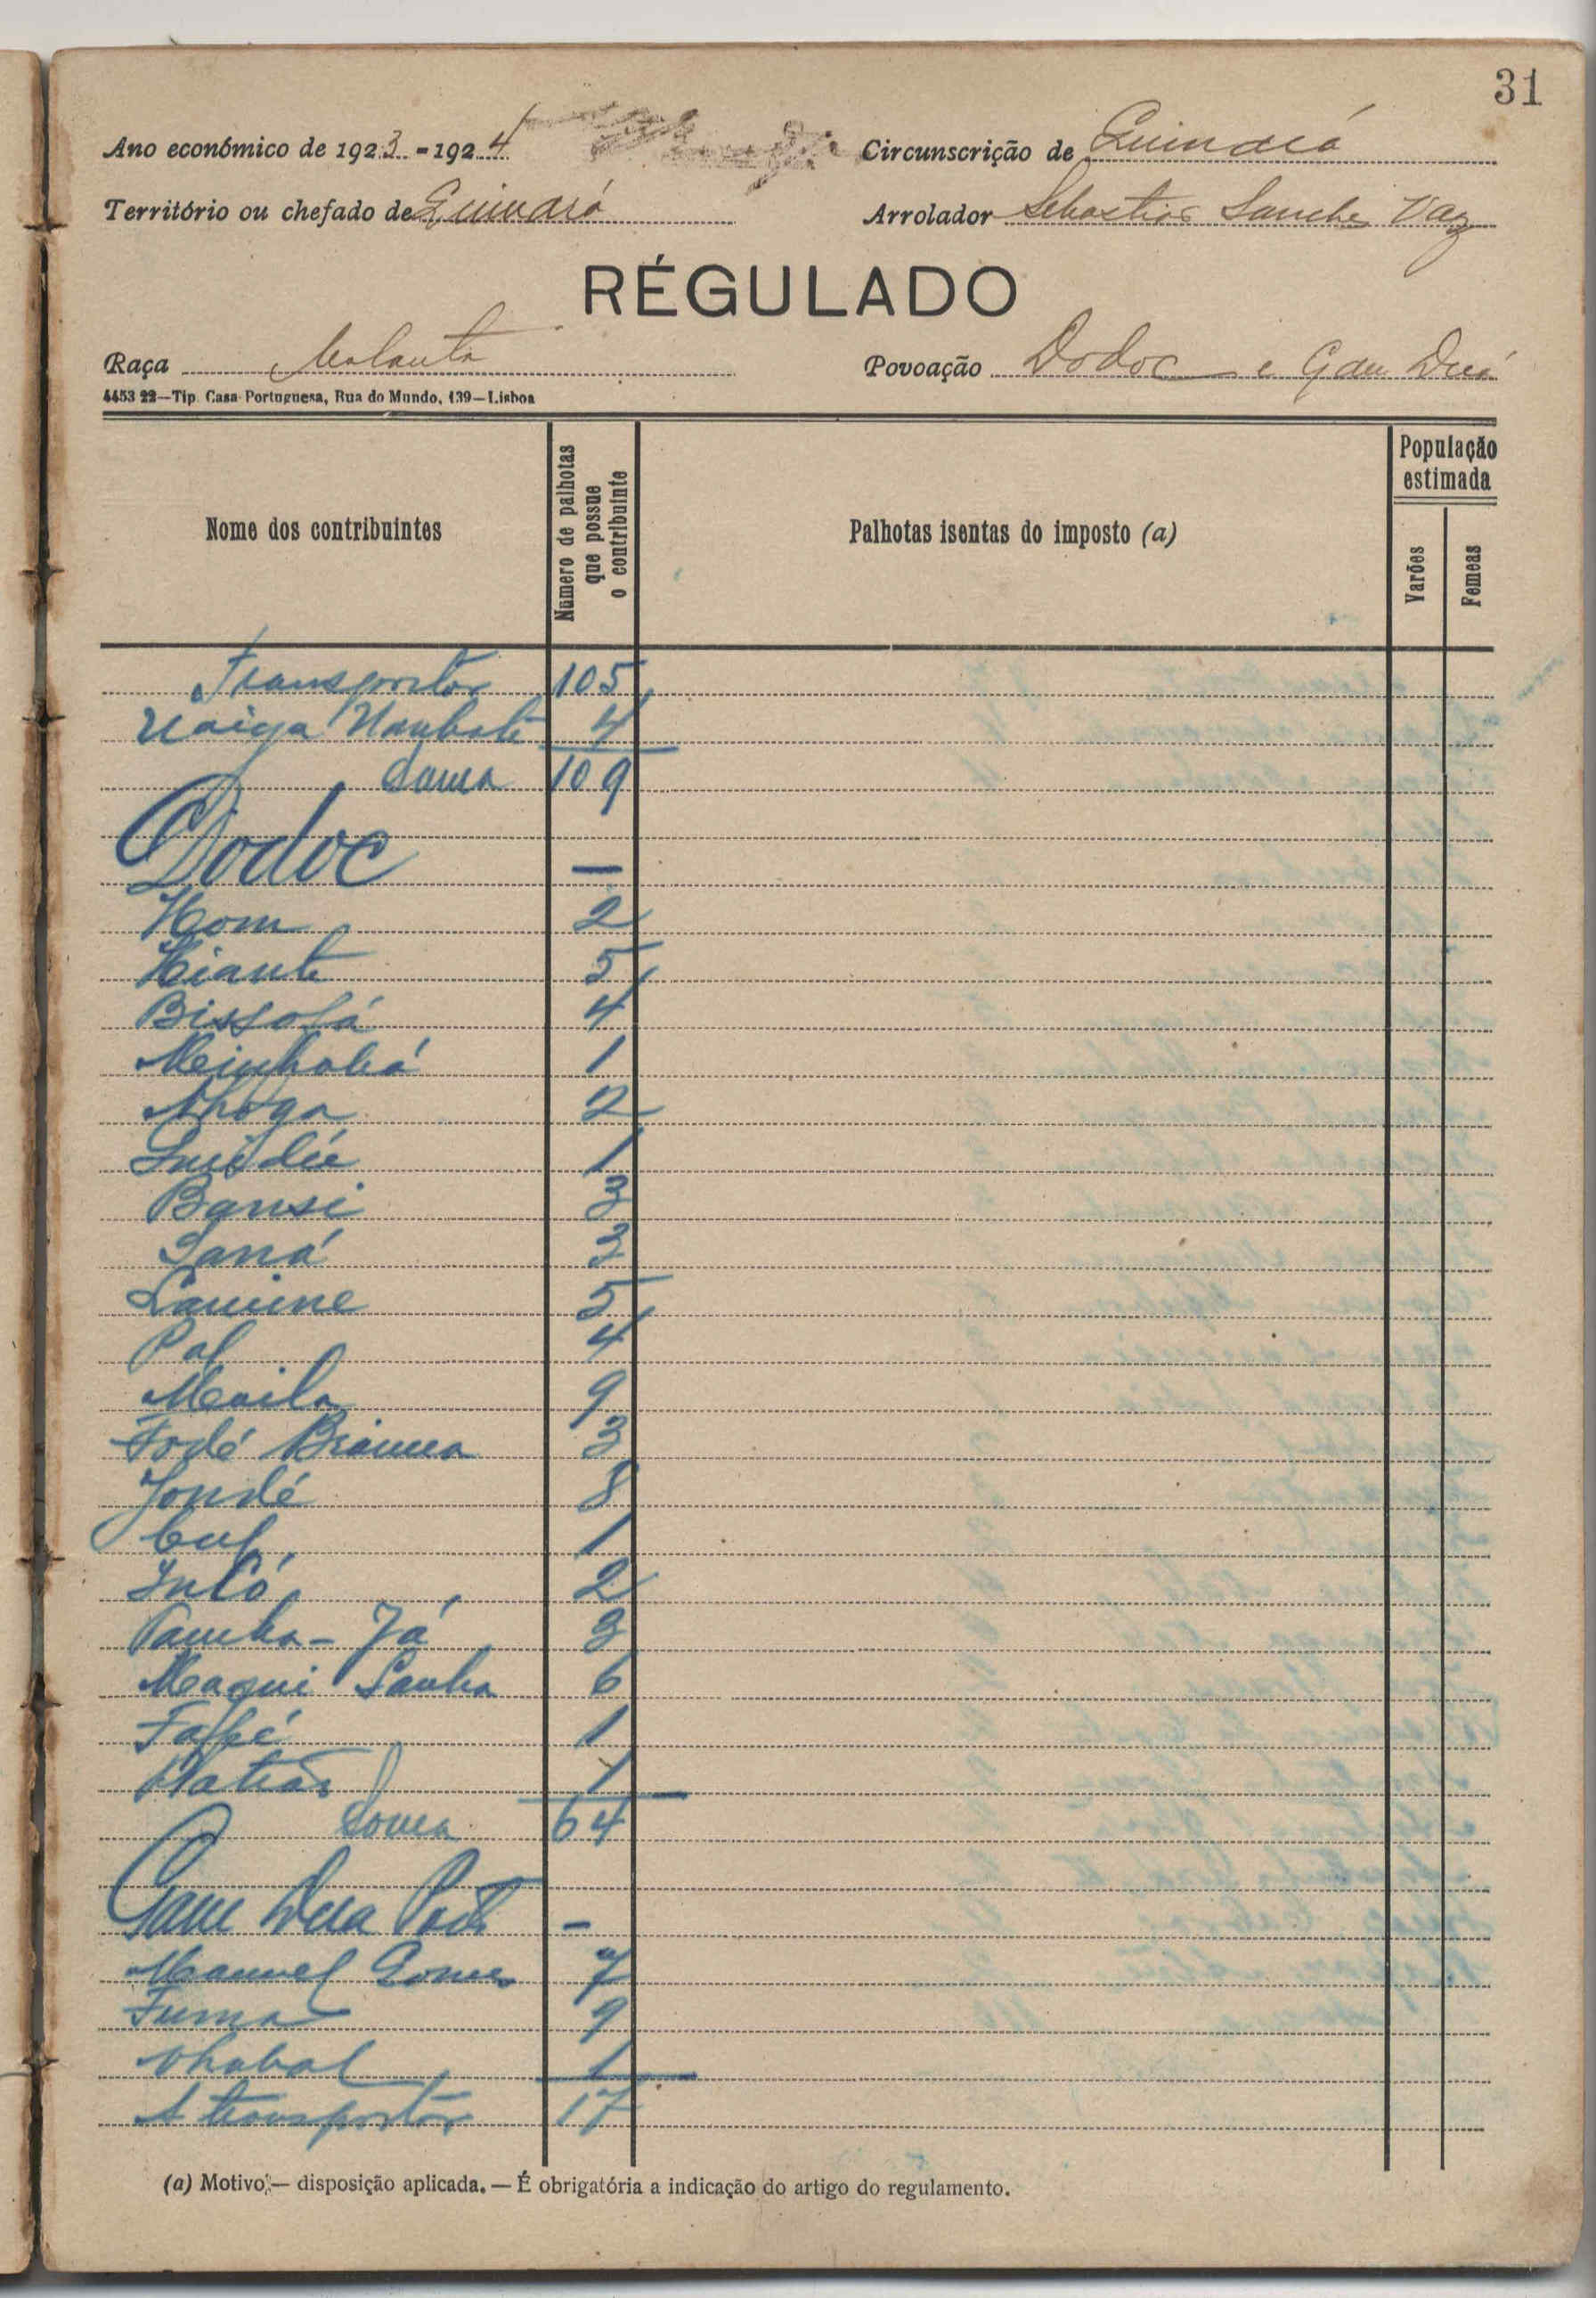 31
Ano económico de 1923 - 1924
Circunscrição de Quinará
Território ou chefado de Quinará
Arrolador Sebastião Sanches Vaz
RÉGULADO
Raça Balanta
Povoação Dodoc e Gam Duá
4453 22—Tip. Casa Portuguesa, Rua do Mundo, 139—Lisboa
Nome dos contribuintes
Número de palhotas que possue o contribuinte
Palhotas isentas do imposto (a)
População estimada
Varões
Femeas
Transportar 105
4
Soma 109
Dodoc —
Hom 2
Kiante 5
Bissolá 4
1
Nhoga 2
1
Bansi 3
Saná 3
Lamine 5
Pal 4
9
Fodé Brauma 3
Jondé 8
1
2
Pamba-Já 3
Maqui Sanha 6
1
1
Soma 64
Gam Dua —
Manuel Gomes 7
Fuma 9
Nhabal 1
A transportar 17
(a) Motivo — disposição aplicada. — É obrigatória a indicação do artigo do regulamento.